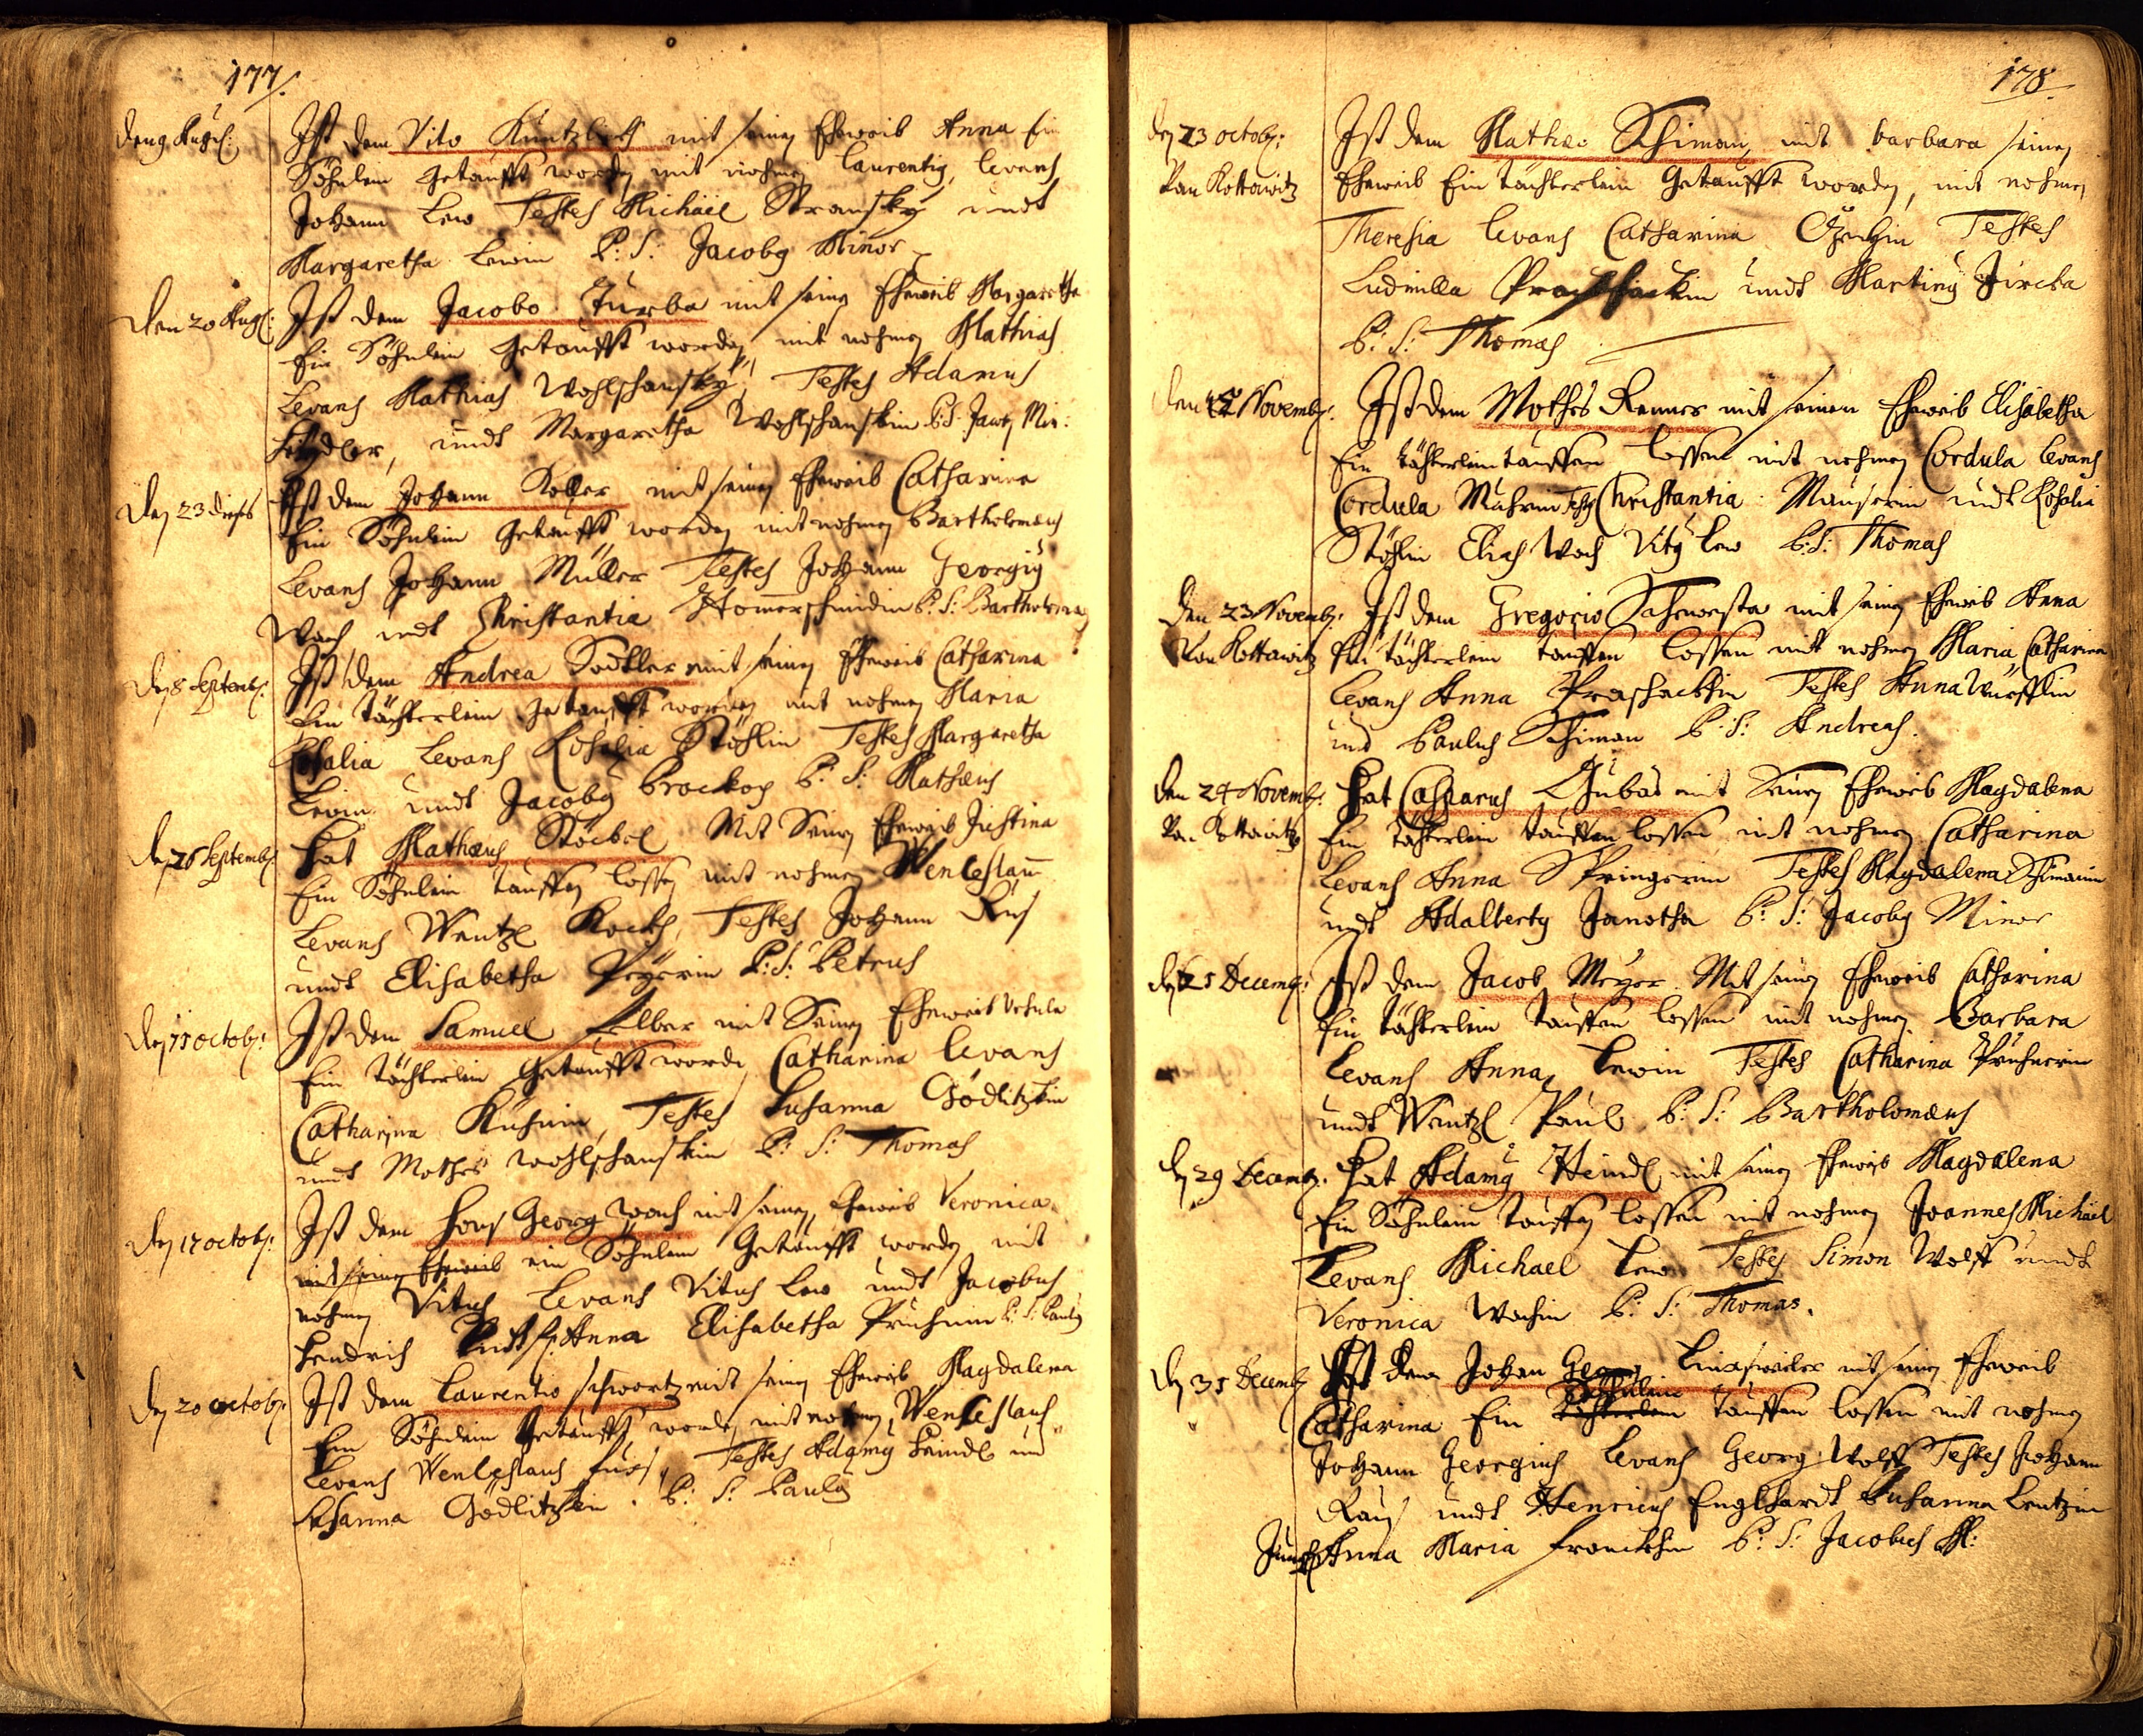 177.
Den 9 Augst:
Ist dem Vito Küntzlich mit seinen Eheweib Anna Ein
Söhnlein Getaufft worden mit nohmen Laurentig, Levans
Johann Lew Testes Michäel Stransky undt
Margaretha Lewin P: S: Jacobg Minor
Den 20 Augst:
Ist dem Jacobo Turba mit seing Eheweib Margaretha
Ein Söhnlein Getaufft worden mit nohmen Mathias
Levans Mathias Wohlschansky, Testes Adamus
undt Margaretha Wohlschanskin P:S: Jacobg Min:
Den 23 dießes
Ist dem Johann Koller mit seinen Eheweib Catharina
Ein Söhnlein Getaufft worden mit nohmen Bartholomæus
Levans Johann Müller Testes Johann Georgig
Wach undt Christantia Homerschmidin P: S: Bartholomæg
Den 8 Septemb:
Ist dem Andrea Sodtler mit seinen Eheweib Catharina
Ein töchterlein Getaufft worden mit nohmen Maria
Rosalia Levans Rosalia Stöhlin Testes Margaretha
Lewin undt Jacobg Prockop P: S: Mathæus
Den 26 Septemb:
Hat Mathæus Stöckel Mit Seinen Eheweib Justina
Ein Söhnlein tauffen lossen mit nohmen Wenceslaum
Levans Wentzl Kocks, Testes Johann Rus
undt Elisabetha Peyerin P: S: Petrus
Den 15 octob:
Ist dem Samuel Elber mit Seinen Eheweib Ursula
Ein töchterlein Getaufft worde Catharina Levans
Catharina Kühnin, Testes Susanna Gödlitzkin
undt Mathes Wohlschanskin P: S: Thomas
Den 17 octob:
Ist dem Hons Georg Wach mit seinen Eheweib Veronica
mit seinen Eheweib ein Söhnlein Getaufft worden mit
nohmen Vitus Levans Vitus Lew undt Jacobus
Hendrich Anna Elisabetha Pruhnin P: S: Paulg
Den 20 octob:
Ist dem Laurentio Schwartz mit seinen Eheweib Magdalena
Ein Söhnlein Getaufft worde mit nohmen Wenceslaus
Levans Wenceslaus Fuxs, Testes Adamg Heindl und
Susanna Gödlitzkin. P: S: Paulg
178.
Den 23 octob:
Von Kottowitz
Ist dem Mathæo Schiman, mit barbara seinen
Eheweib Ein töchterlein Getaufft worden, mit nohmen
Theresia Levans Catharina Testes
Ludmilla undt Marting Jircka
P: S: Thomas
Den 12 Novemb:
Ist dem Mothes Renner mit seinen Eheweib Elisabetha
Ein töchterlein tauffen lossen mit nohmen Cordula Levans
Cordula Mahrin Testes Christantia Mauserin undt Rosalia
Stöhlin Elias Wach Vitg Lew P: S: Thomas
Den 23 Novemb:
Von Kottowitz
Ist dem Gregorio Schewesta mit seinen Eheweib Anna
Ein töchterlein tauffen lossen mit nohmen Maria Catharina
Levans Anna Praschackkin Testes Anna Würfflin
und Paulus Schiman P: S: Andreas.
Den 24 Novemb:
Von Kottowitz
Hat Casparus Chubat mit Seinen Eheweib Magdalena
Ein töchterlein tauffen lossen mit nohmen Catharina
Levans Anna Springerin Testes Magdalena Schimanin
undt Adalbertg Janotha P: S: Jacobg Minor
Den 25 Decemb:
Ist dem Jacob Meyer Mit seinen Eheweib Catharina
Ein töchterlein tauffen lossen mit nohmen Barbara
Levans Anna Lewin Testes Catharina Pruhnerin
undt Wentzl Paul P: S: Bartholomæus
Den 29 Decemb:
Hat Adamg Heindl mit seinen Eheweib Magdalena
Ein Söhnlein tauffen lossen mit nohmen Joannes Michäel
Levans Michael Lew Testes Simon Wolff undt
Veronica Wachin P: S: Thomas.
Den 31 Decemb
Ist dem Johan Georg mit seinen Eheweib
Söhnlein
Catharina Ein töchterlein tauffen lossen mit nohmen
Johann Georgius Levans Georg Wolff Testes Johann
Raus undt Henricus Englhardt Susanna Lentzin
Jungf Anna Maria Franckhin P: S: Jacobus M: